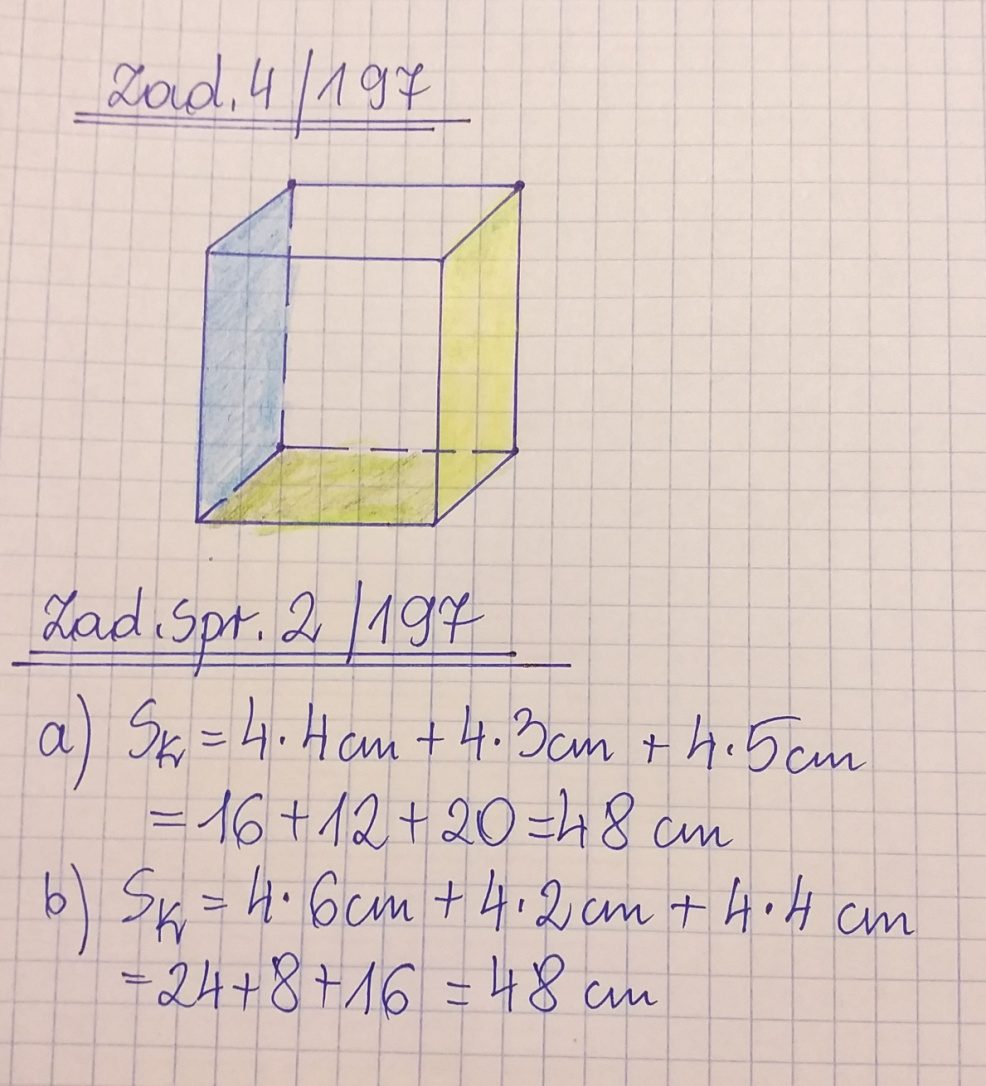 Zad. 4/197
Zad. Spr. 2/197
a) Sk = 4·4cm + 4·3cm + 4·5cm
= 16 + 12 + 20 = 48 cm
b) Sk = 4·6cm + 4·2cm + 4·4 cm
= 24 + 8 + 16 = 48 cm